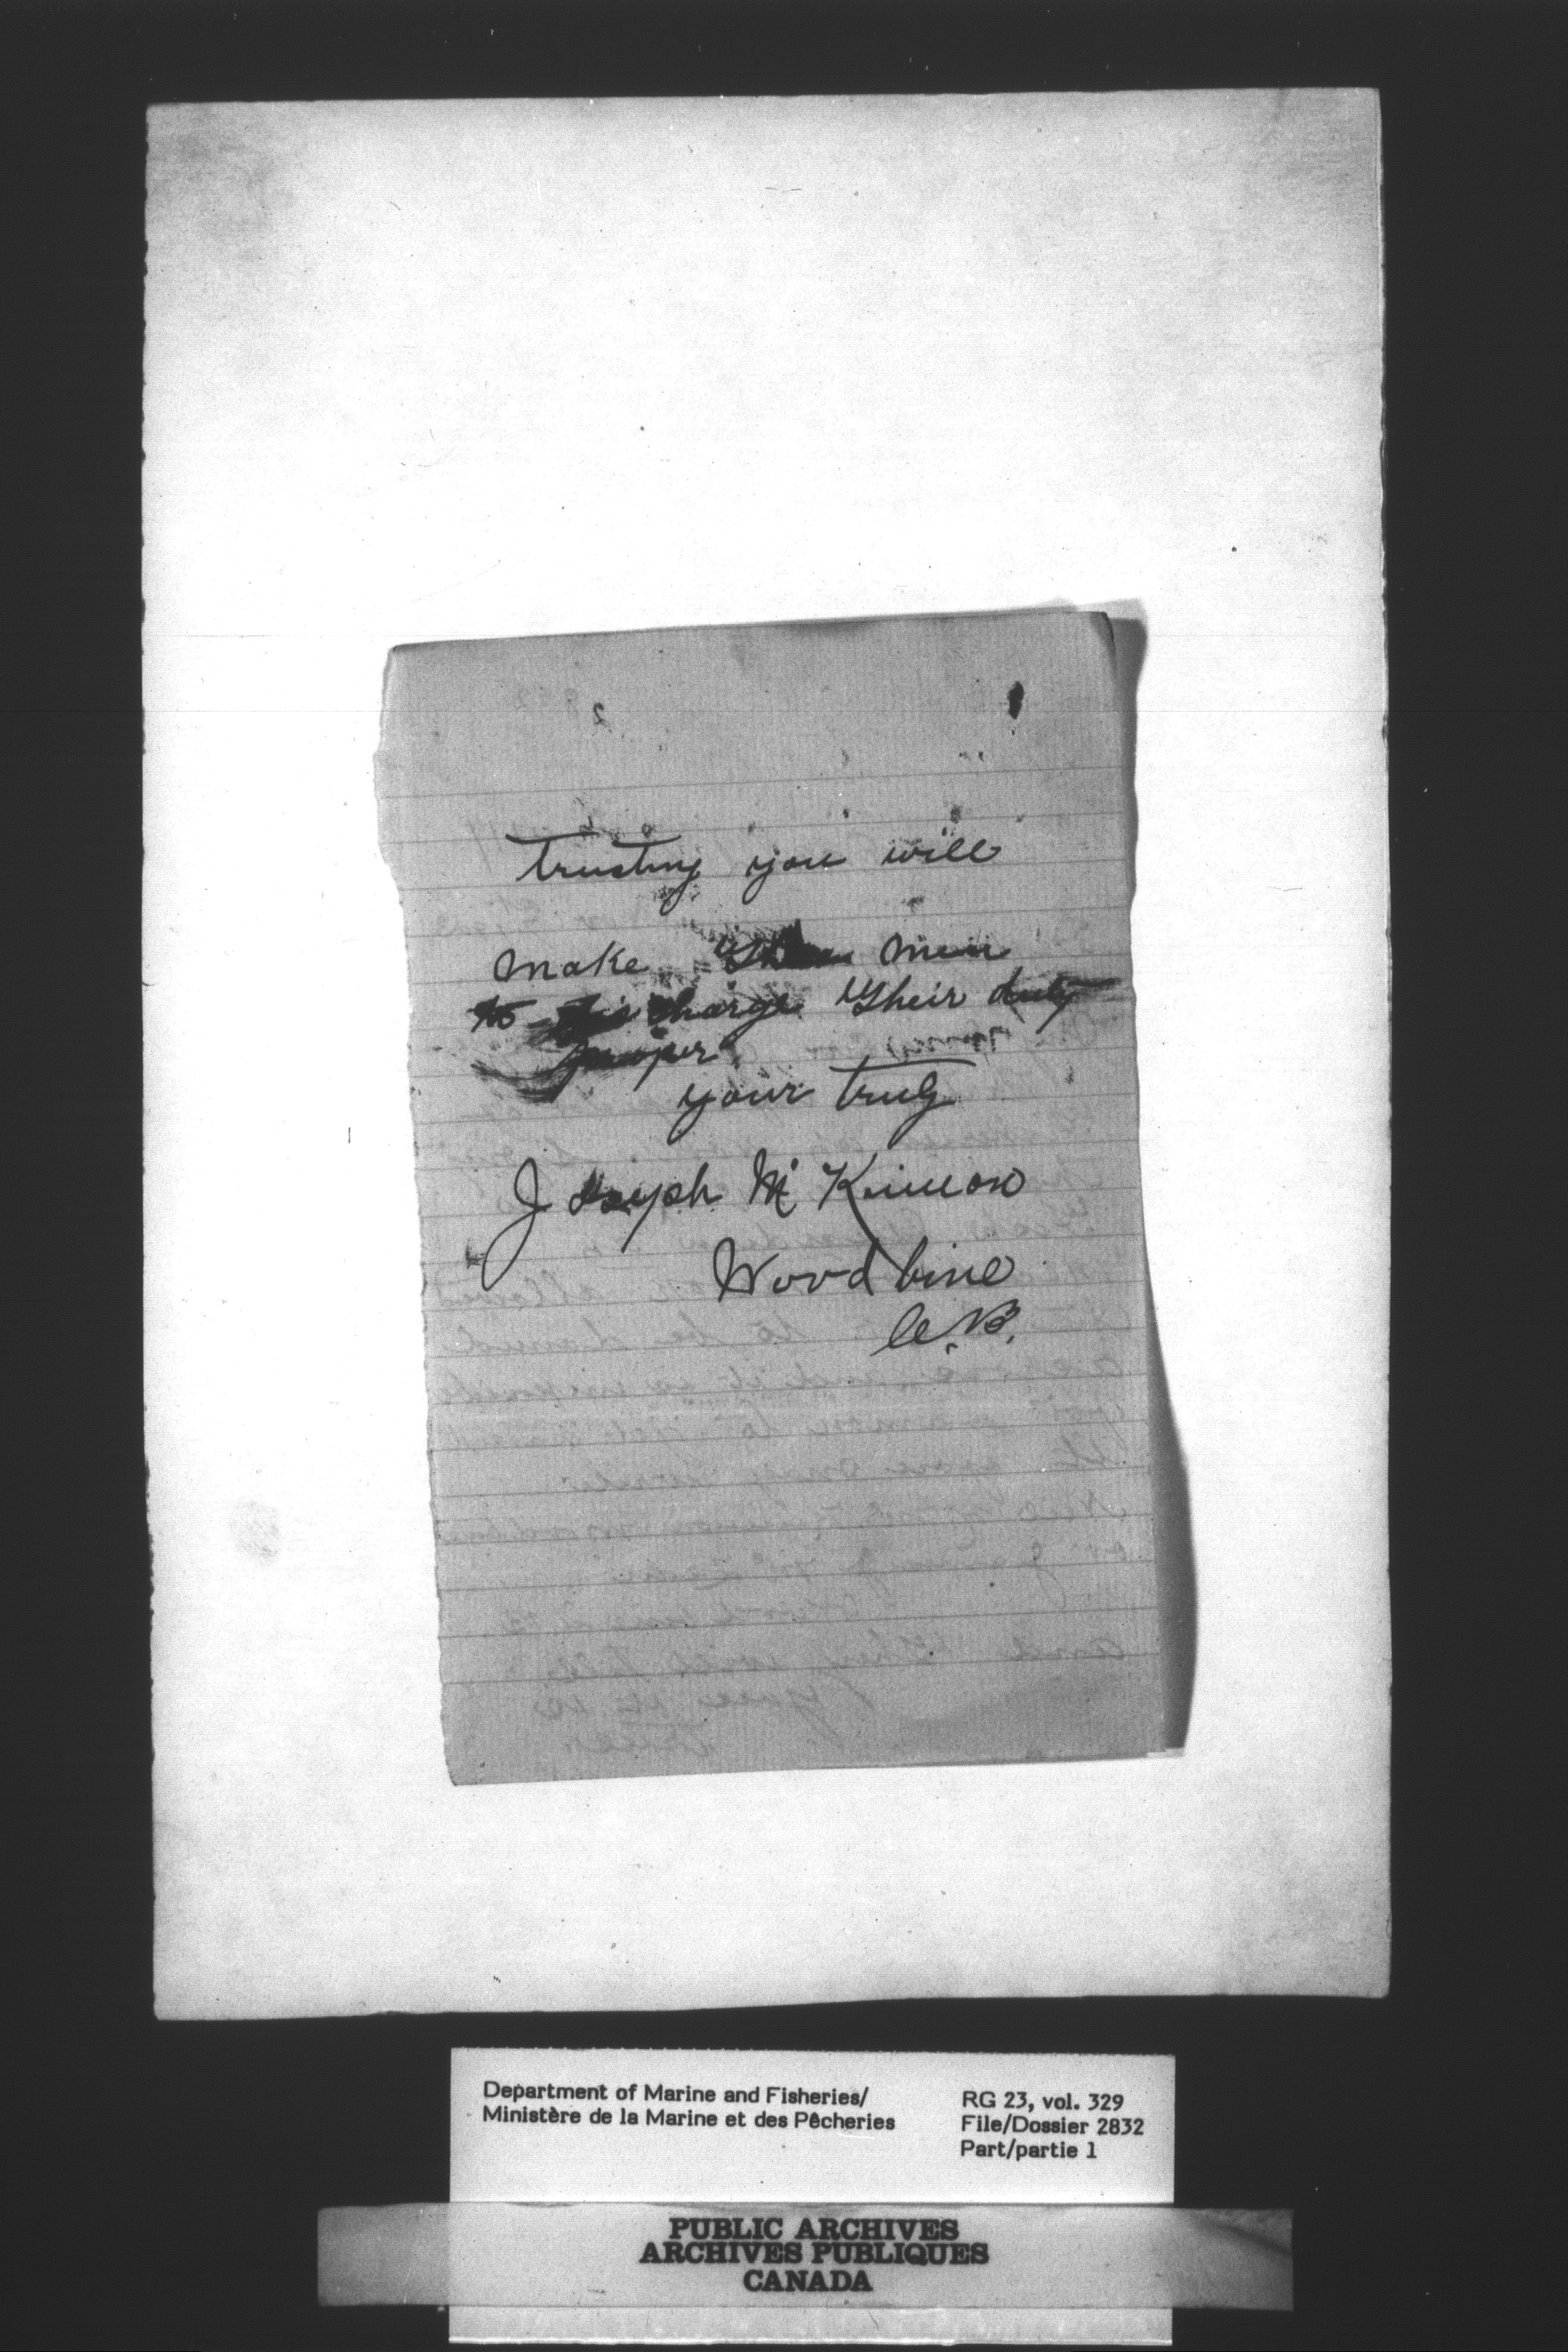 2
trusting you will
make men
to discharge Their duty
proper
your truly
Joseph Mc Kinnon
Woodbine
C.B.
Department of Marine and Fisheries/
Ministère de la Marine et des Pêcheries
RG 23, vol. 329
File/Dossier 2832
Part/partie 1
PUBLIC ARCHIVES
ARCHIVES PUBLIQUES
CANADA